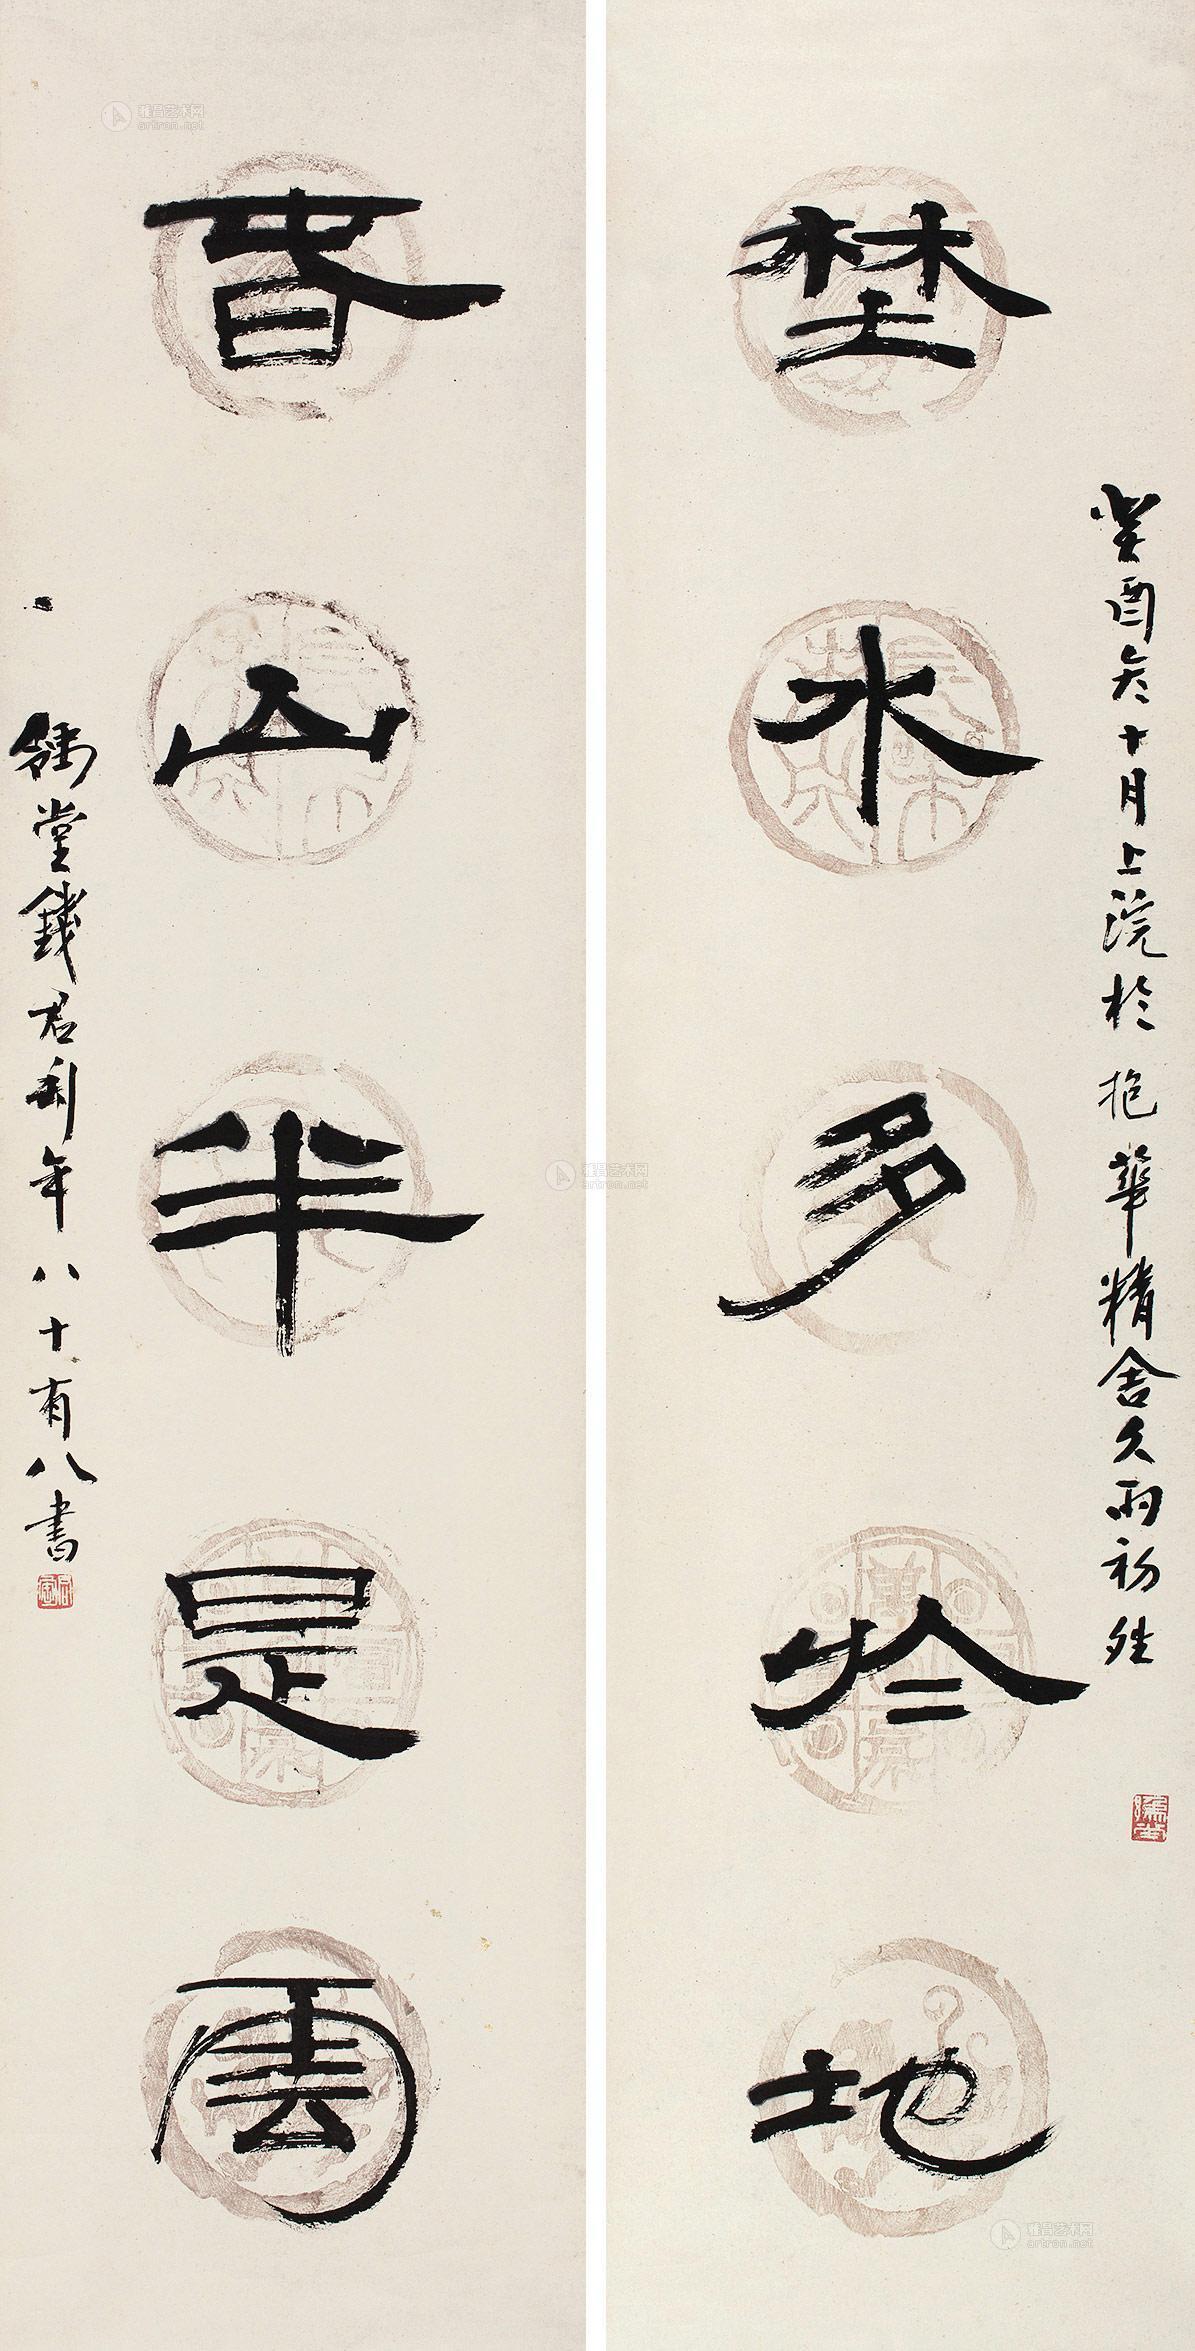 埜水多於地
癸酉冬十月上浣於抱華精舍久雨初夝
春山半是雲
豫堂錢君匋年八十有八書
雅昌艺术网
artron.net
雅昌艺术网
artron.net
雅昌艺术网
artron.net